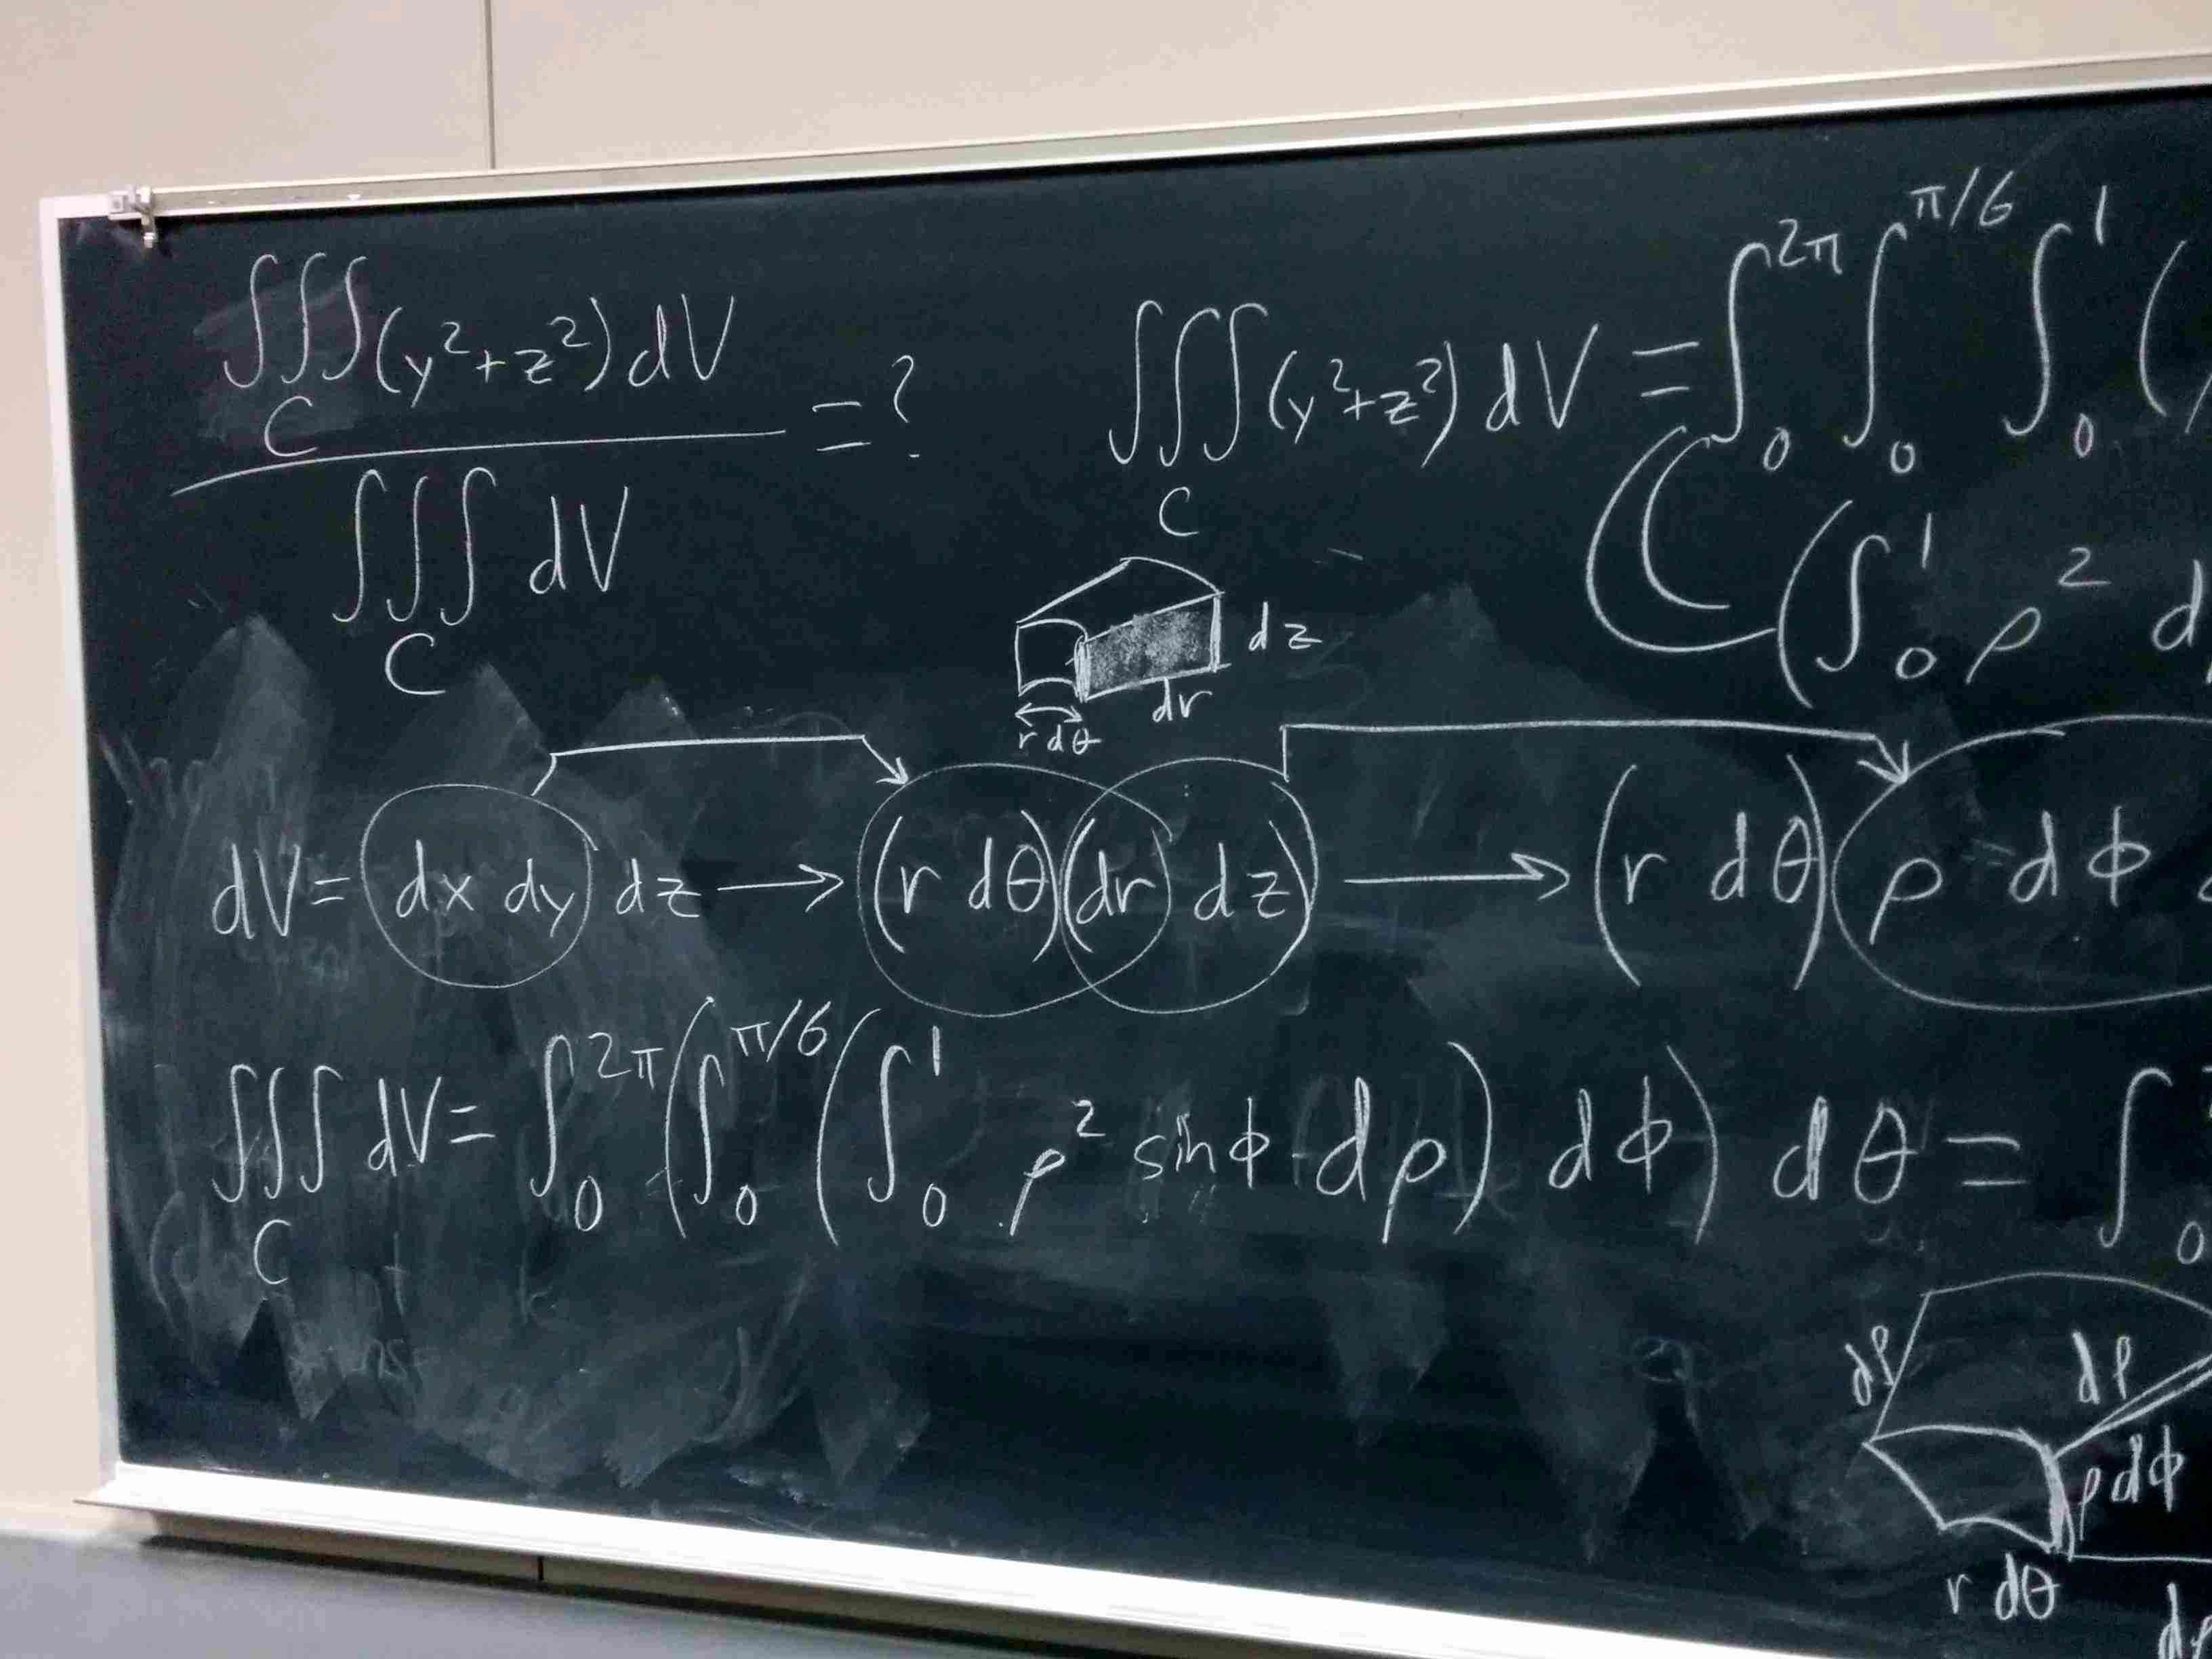 ∭_C (y²+z²) dV / ∭_C dV = ?
∭_C (y²+z²) dV = ∫_0^{2π} ∫_0^{π/6} ∫_0^1 (
(∫_0^1 ρ² d
dz
dr
r dθ
dV = dx dy dz → (r dθ)(dr dz) → (r dθ)(ρ dϕ
∭_C dV = ∫_0^{2π} (∫_0^{π/6} (∫_0^1 ρ² sinϕ dρ) dϕ) dθ = ∫_0
dρ
dρ
ρ dϕ
r dθ